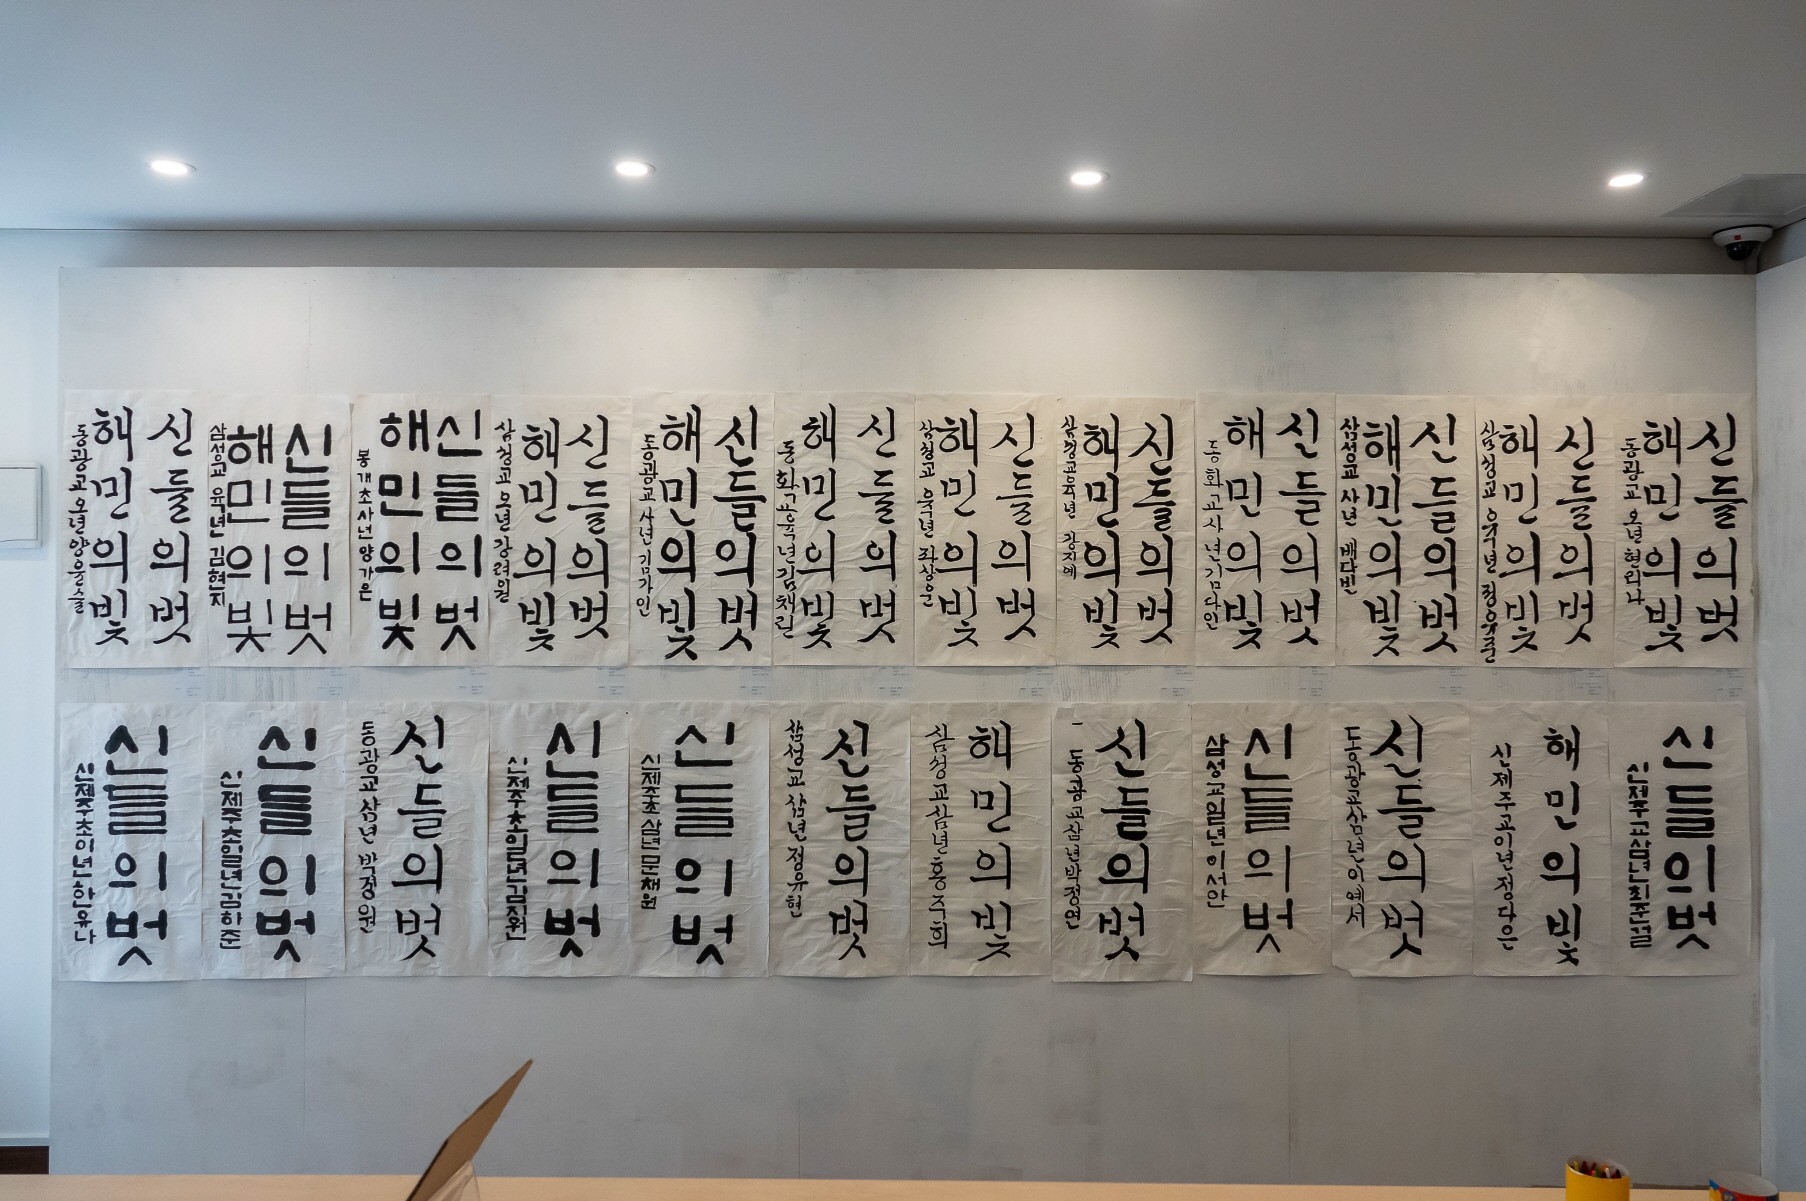 신들의벗
해민의빛
동광교 오년 양윤슬
신들의벗
해민의빛
삼성교 육년 김현지
신들의벗
해민의빛
봉개초사년 양가은
신들의벗
해민의빛
삼성교 오년 강려원
신들의벗
해민의빛
동광교 사년 김가인
신들의벗
해민의빛
동화교육년김채린
신들의벗
해민의빛
삼성교 육년 좌상윤
신들의벗
해민의빛
삼성교육년 강지예
신들의벗
해민의빛
동화교사년김다인
신들의벗
해민의빛
삼성교 사년 배다빈
신들의벗
해민의빛
삼성교 육년 정우준
신들의벗
해민의빛
동광교 오년 현리나
신들의벗
신제주초이년한유나
신들의벗
신제주초일년김하준
신들의벗
동광교 삼년 박정원
신들의벗
신제주초일년김지원
신들의벗
신제주초삼년문채원
신들의벗
삼성교 삼년 정유현
해민의빛
삼성교삼년홍주희
신들의벗
동광교삼년박정연
신들의벗
삼성교일년이서안
신들의벗
동광교삼년이예서
해민의빛
신제주교이년정다은
신들의벗
신제주교삼년최준열